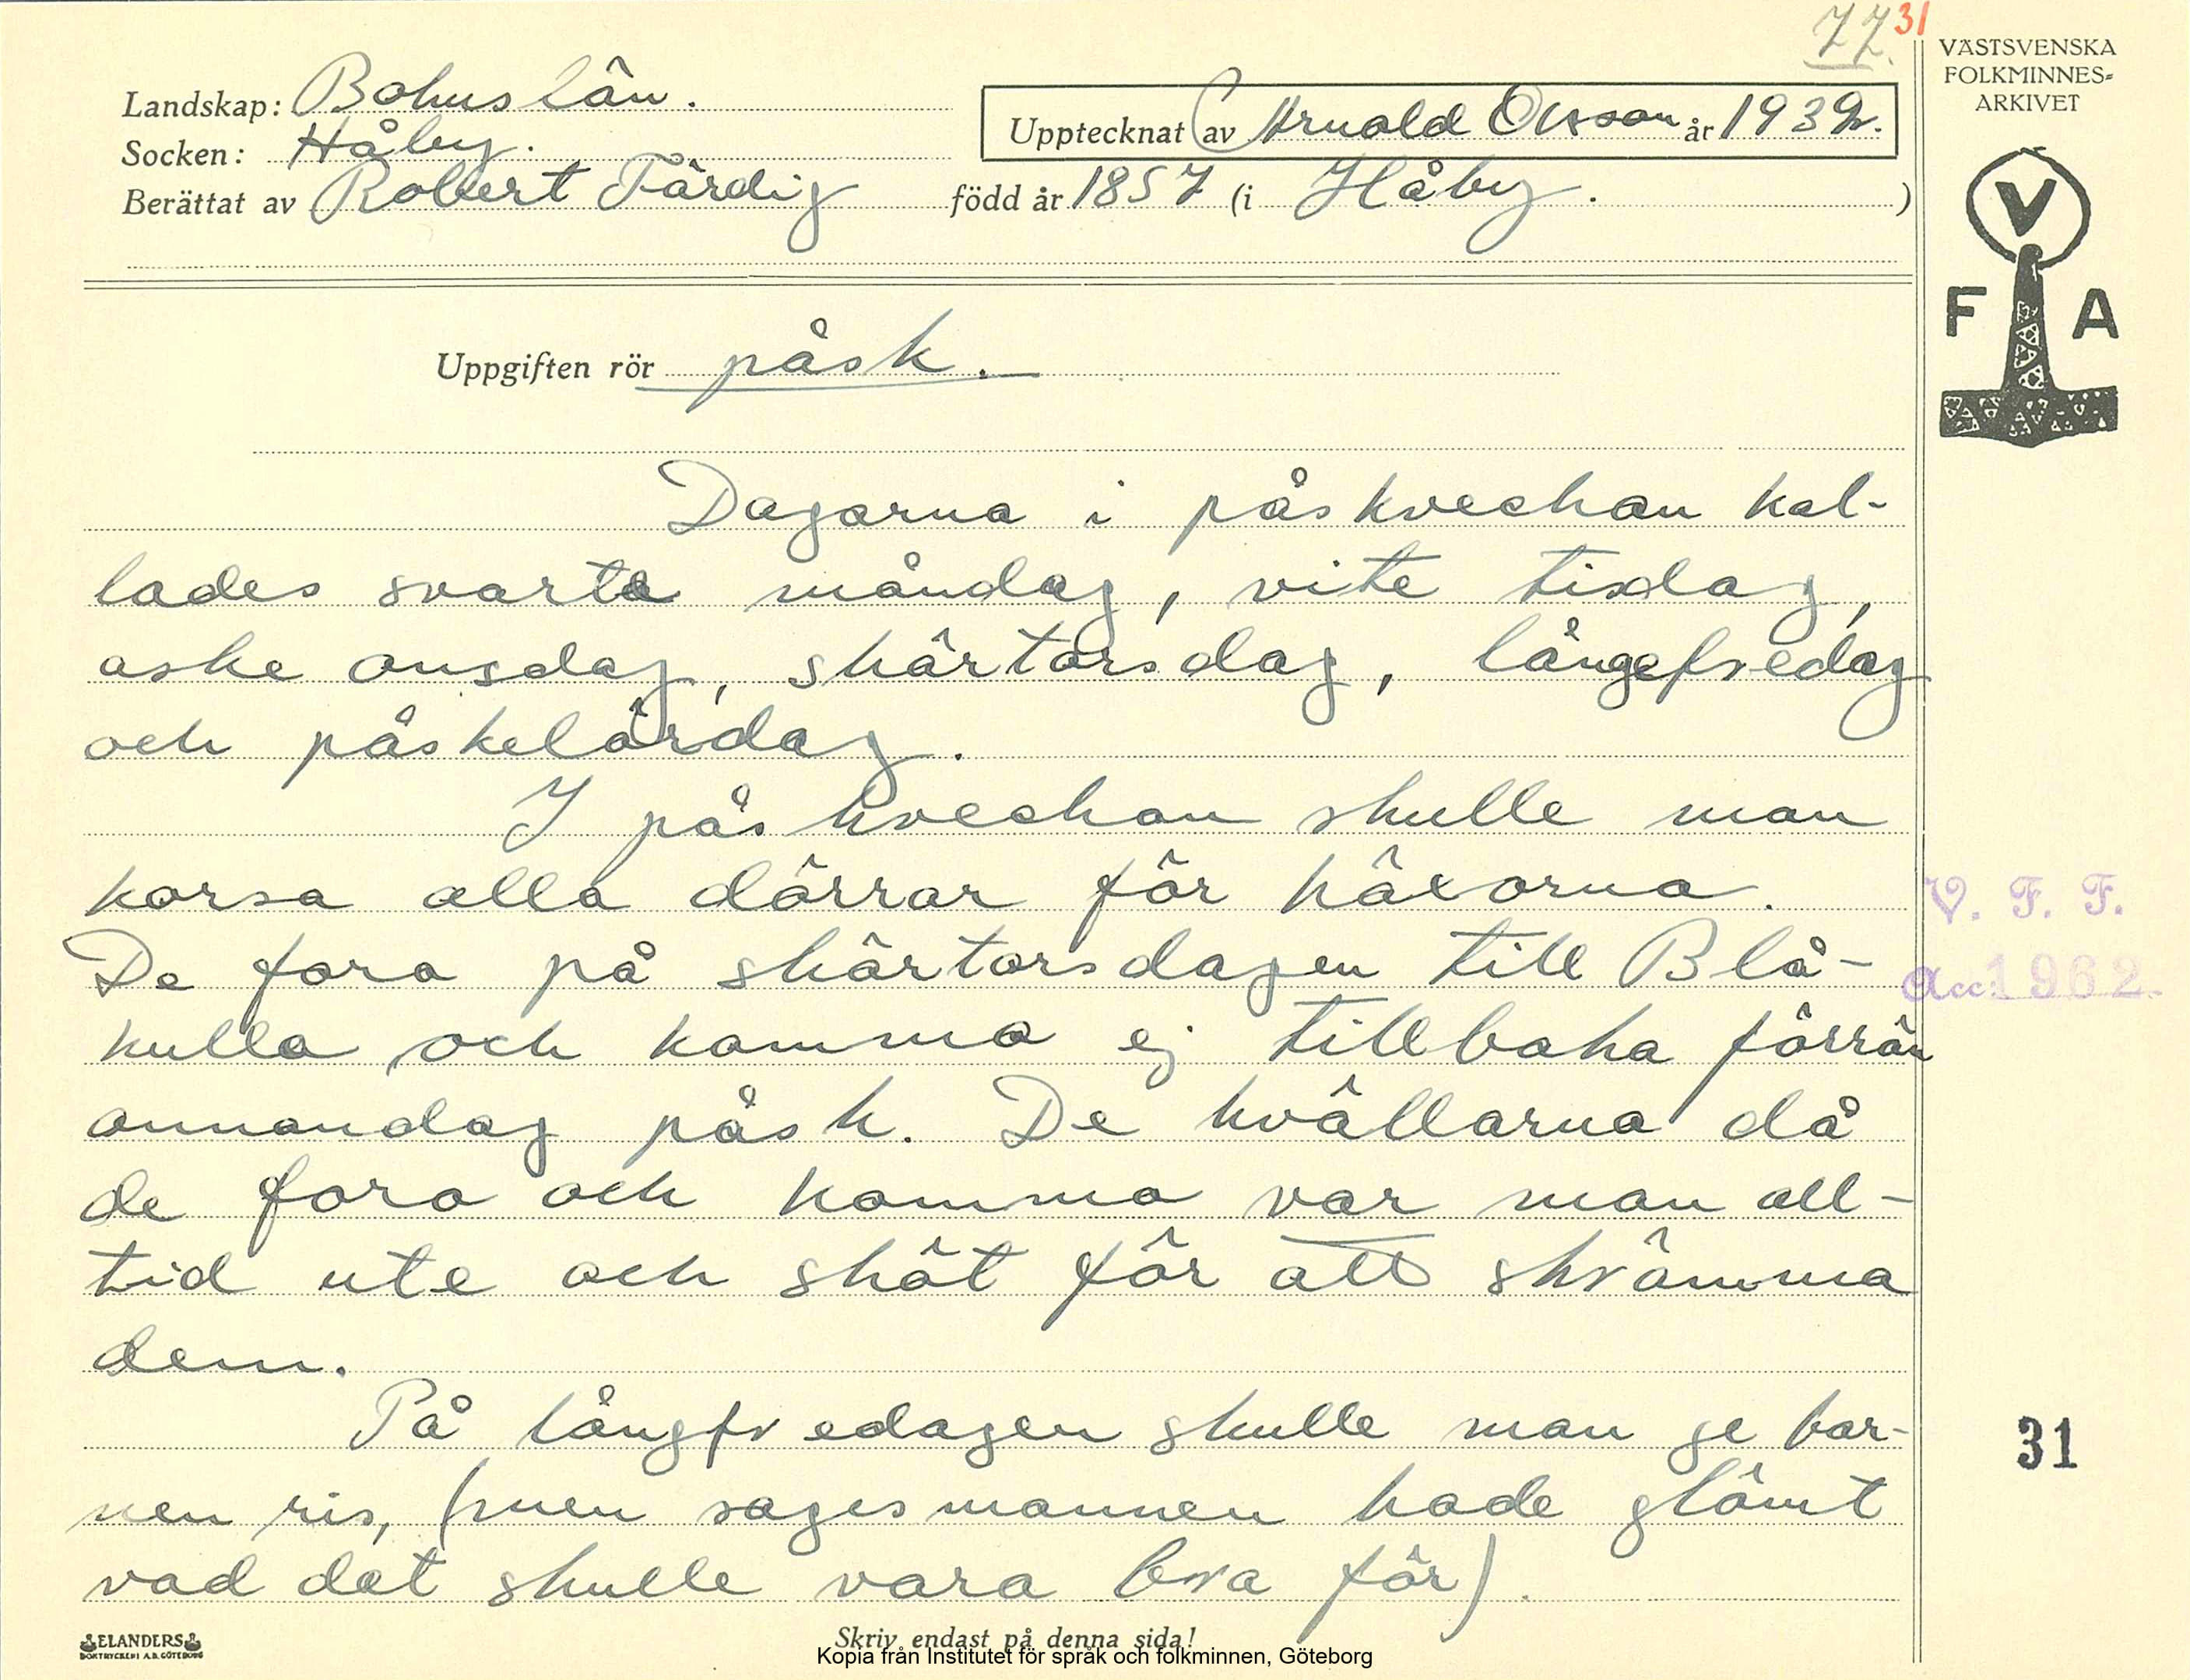 77. 31
VÄSTSVENSKA
FOLKMINNES-
ARKIVET
Landskap: Bohuslän.
Upptecknat av Arnold Olsson år 1932.
Socken: Håby.
Berättat av Robert Färdig född år 1857 (i Håby. )
V
F A
Uppgiften rör påsk.
Dagarna i påskveckan kal-
lades svarta måndag, vite tisdag,
aske onsdag, skärtorsdag, långefredag
och påskelördag.
I påskveckan skulle man
korsa alla dörrar för häxorna.
De fora på skärtorsdagen till Blå-
kulla och komma ej tillbaka förrän
annandag påsk. De kvällarna då
de fora och komma var man all-
tid ute och sköt för att skrämma
dem.
På långfredagen skulle man ge bar-
nen ris, (men sagesmannen hade glömt
vad det skulle vara bra för).
V. F. F.
Acc: 1962.
31
ELANDERS
BOKTRYCKERI A.B. GÖTEBORG
Skriv endast på denna sida!
Kopia från Institutet för språk och folkminnen, Göteborg